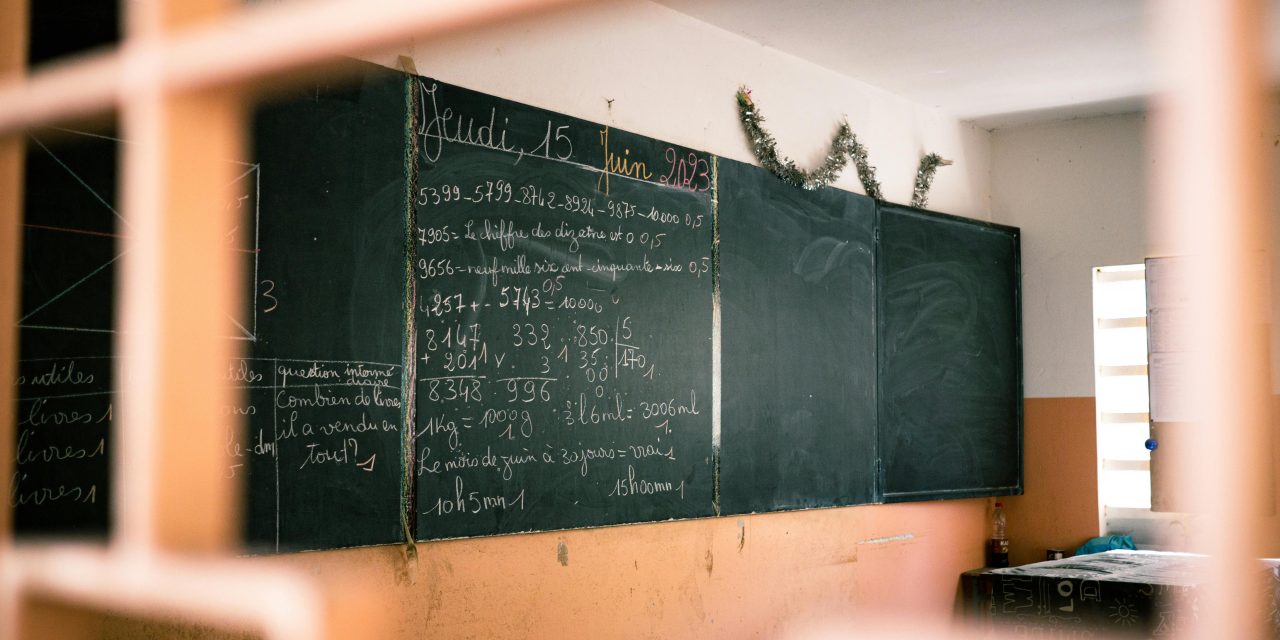 Jeudi, 15 Juin 2023
5399-5799-8742-8924-9875-10000 0,5
7905= Le chiffre des dizaine est 0 0,5
9656= neuf mille six cent-cinquante-six 0,5
4257 + - 5743 = 10000 0,5
8147 332 850 5
+ 201 1 3 1 35 170 1
8348 996 00
0
1Kg = 1000g 1 3l6ml = 3006ml 1
Le mois de juin à 30 jours = vrai 1
10h5mn 1 15h00mn 1
3
utiles question intermé
diaire
livres 1 Combien de livres
livres 1 il a vendu en
livres 1 tout? 1